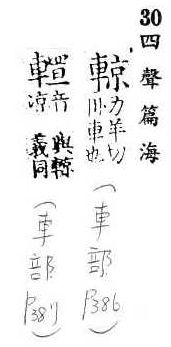 30 四聲篇海
輬 力羊切 卧車也 (車部 P386)
音涼 與輬義同 (車部 P387)